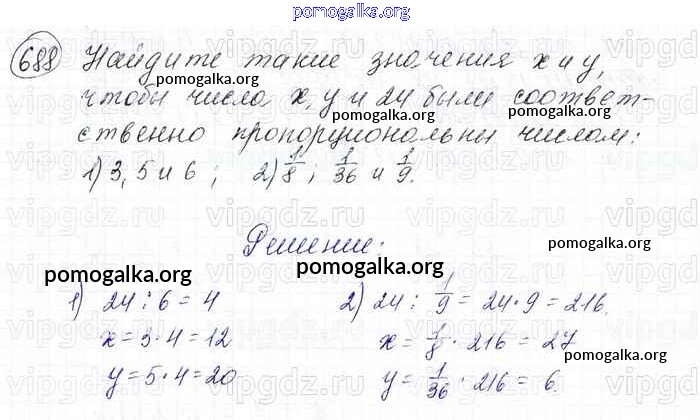 pomogalka.org
688 Найдите такие значения x и y,
pomogalka.org
чтобы числа x, y и 24 были соответ-
pomogalka.org
ственно пропорциональны числам:
1) 3, 5 и 6 ; 2) 1/8 ; 1/36 и 1/9.
vipgdz.ru vipgdz.ru vipgdz.ru vipgdz.ru
Решение:
pomogalka.org
pomogalka.org pomogalka.org
1) 24 : 6 = 4
x = 3 · 4 = 12
y = 5 · 4 = 20
2) 24 : 1/9 = 24 · 9 = 216.
x = 1/8 · 216 = 27
pomogalka.org
y = 1/36 · 216 = 6.